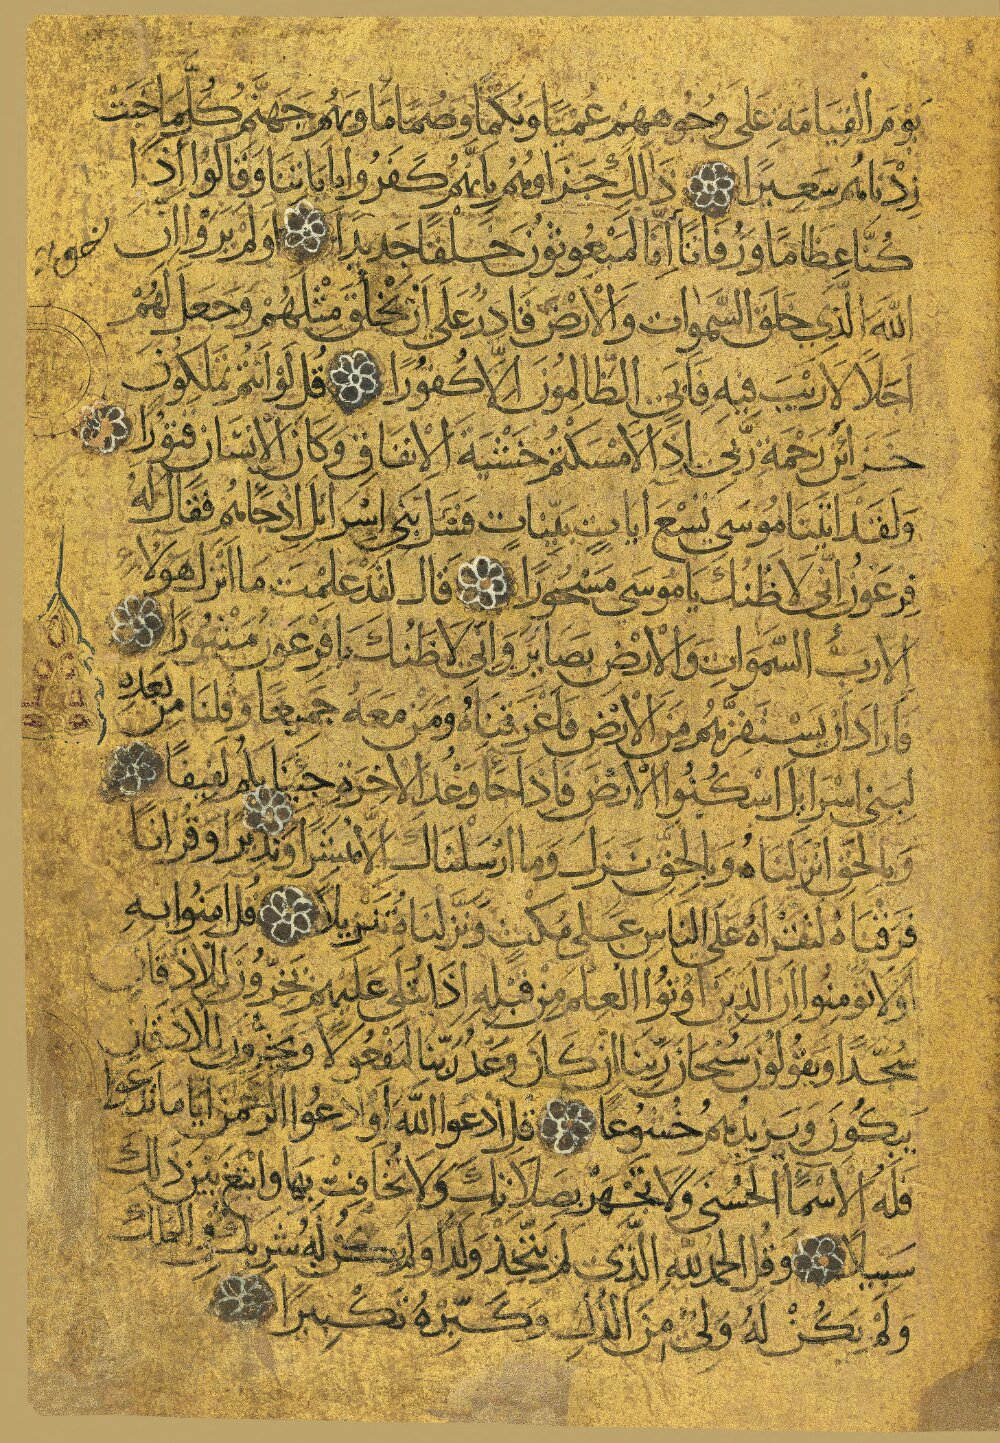 يَوْمَ الْقِيَامَةِ عَلَى وُجُوهِهِمْ عُمْيًا وَبُكْمًا وَصُمًّا مَاوَيهُمْ جَهَنَّمُ كُلَّمَا خَبَتْ
زِدْنَاهُمْ سَعِيرًا ذَلِكَ جَزَاوُهُمْ بِاَنَّهُمْ كَفَرُوا بِايَاتِنَا وَقَالُوا اَئِذَا
كُنَّا عِظَامًا وَرُفَاتًا اَئِنَّا لَمَبْعُوثُونَ خَلْقًا جَدِيدًا اَوَلَمْ يَرَوْا اَن
اللَّهَ الَّذِي خَلَقَ السَّمَوَاتِ وَالْاَرْضَ قَادِرٌ عَلَى اَنْ يَخْلُقَ مِثْلَهُمْ وَجَعَلَ لَهُمْ
اَجَلًا لَا رَيْبَ فِيهِ فَاَبَى الظَّالِمُونَ اِلَّا كُفُورًا قُلْ لَوْ اَنْتُمْ تَمْلِكُونَ
خَزَائِنَ رَحْمَةِ رَبِّي اِذًا لَاَمْسَكْتُمْ خَشْيَةَ الْاِنْفَاقِ وَكَانَ الْاِنْسَانُ قَتُورًا
وَلَقَدْ اتَيْنَا مُوسَى تِسْعَ ايَاتٍ بَيِّنَاتٍ فَسْئَلْ بَنِي اِسْرَائِلَ اِذْ جَاهُمْ فَقَالَ لَهُ
فِرْعَوْنُ اِنِّي لَاَظُنُّكَ يَامُوسَى مَسْحُورًا قَالَ لَقَدْ عَلِمْتَ مَا اَنْزَلَ هَؤُلَاءِ
اِلَّا رَبُّ السَّمَوَاتِ وَالْاَرْضِ بَصَائِرَ وَاِنِّي لَاَظُنُّكَ يَافِرْعَوْنُ مَثْبُورًا
فَاَرَادَ اَنْ يَسْتَفِزَّهُمْ مِنَ الْاَرْضِ فَاَغْرَقْنَاهُ وَمَنْ مَعَهُ جَمِيعًا وَقُلْنَا مِنْ بَعْدِهِ
لِبَنِي اِسْرَائِلَ اسْكُنُوا الْاَرْضَ فَاِذَا جَا وَعْدُ الْاخِرَةِ جِئْنَا بِكُمْ لَفِيفًا
وَبِالْحَقِّ اَنْزَلْنَاهُ وَبِالْحَقِّ نَزَلَ وَمَا اَرْسَلْنَاكَ اِلَّا مُبَشِّرًا وَنَذِيرًا وَقُرْانًا
فَرَقْنَاهُ لِتَقْرَاَهُ عَلَى النَّاسِ عَلَى مُكْثٍ وَنَزَّلْنَاهُ تَنْزِيلًا قُلْ امِنُوا بِهِ
اَوْ لَا تُومِنُوا اِنَّ الَّذِينَ اُوتُوا الْعِلْمَ مِنْ قَبْلِهِ اِذَا يُتْلَى عَلَيْهِمْ يَخِرُّونَ لِلْاَذْقَانِ
سُجَّدًا وَيَقُولُونَ سُبْحَانَ رَبِّنَا اِنْ كَانَ وَعْدُ رَبِّنَا لَمَفْعُولًا وَيَخِرُّونَ لِلْاَذْقَانِ
يَبْكُونَ وَيَزِيدُهُمْ خُشُوعًا قُلِ ادْعُوا اللَّهَ اَوِ ادْعُوا الرَّحْمَنَ اَيًّا مَا تَدْعُوا
فَلَهُ الْاَسْمَا الْحُسْنَى وَلَا تَجْهَرْ بِصَلَاتِكَ وَلَا تُخَافِتْ بِهَا وَابْتَغِ بَيْنَ ذَلِكَ
سَبِيلًا وَقُلِ الْحَمْدُ لِلَّهِ الَّذِي لَمْ يَتَّخِذْ وَلَدًا وَلَمْ يَكُنْ لَهُ شَرِيكٌ فِي الْمُلْكِ
وَلَمْ يَكُنْ لَهُ وَلِيٌّ مِنَ الذُّلِّ وَكَبِّرْهُ تَكْبِيرًا